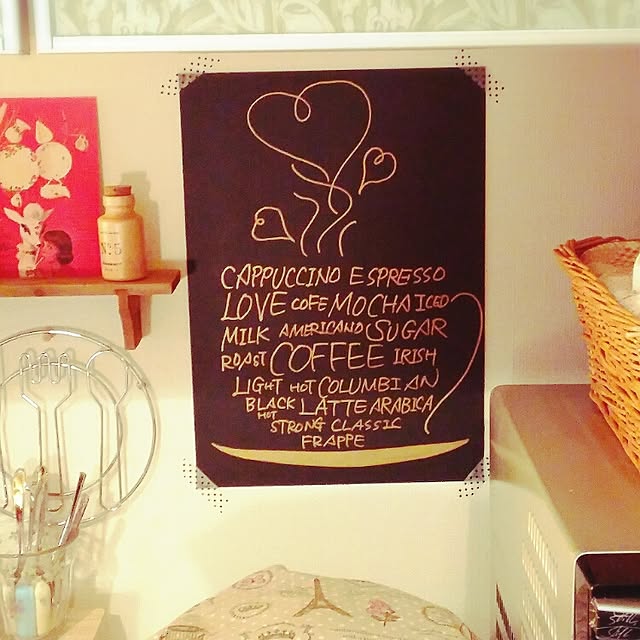 No5
CAPPUCCINO ESPRESSO
LOVE COFE MOCHA ICED
MILK AMERICANO SUGAR
ROAST COFFEE IRISH
LIGHT HOT COLUMBIAN
BLACK LATTE ARABICA
HOT STRONG CLASSIC
FRAPPE